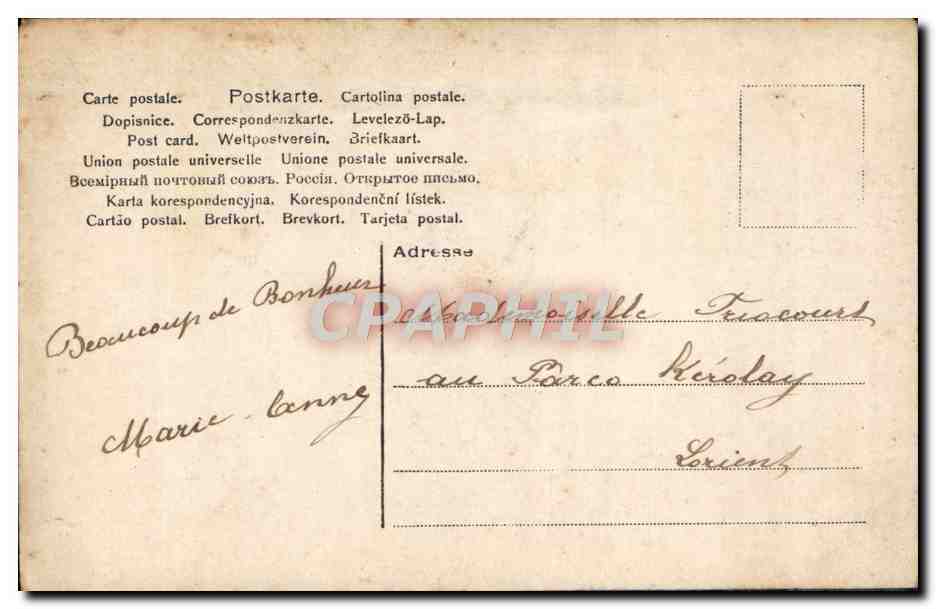 Carte postale. Postkarte. Cartolina postale.
Dopisnice. Correspondenzkarte. Levelező-Lap.
Post card. Weltpostverein. Briefkaart.
Union postale universelle Unione postale universale.
Всемірный почтовый союзъ. Россія. Открытое письмо.
Karta korespondencyjna. Korespondenční lístek.
Cartão postal. Brefkort. Brevkort. Tarjeta postal.
Adresse
Beaucoup de Bonheur
Marie-Anny
CPAPHIL
Mademoiselle Triocourt
au Parco Kérolay
Lorient